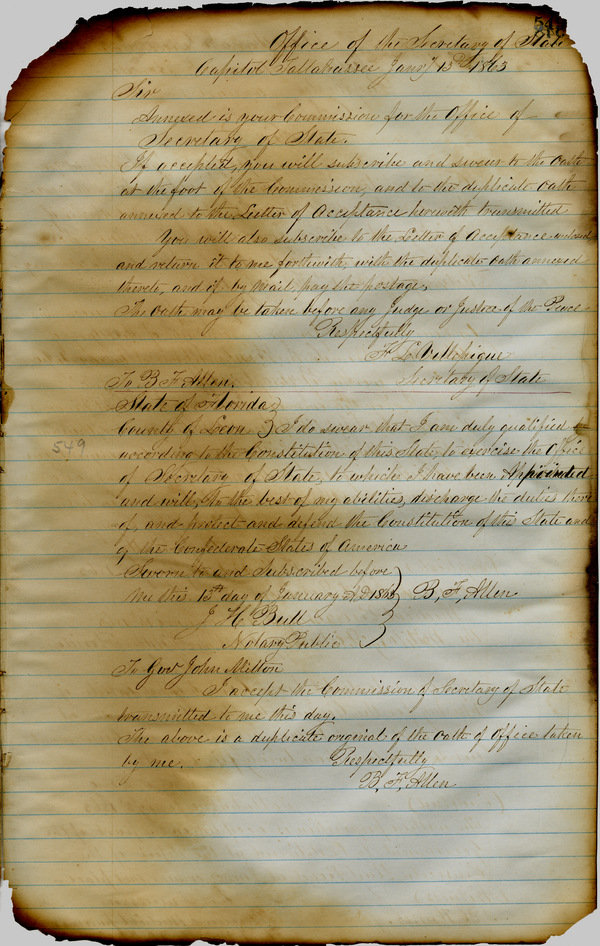 Office of the Secretary of State
Capitol Tallahassee Jany 13th 1863
Sir
Annexed is your Commission for the Office of
Secretary of State.
If accepted, you will subscribe and swear to the Oath
at the foot of the Commission, and to the duplicate Oath
annexed to the Letter of Acceptance herewith transmitted
You will also subscribe to the Letter of Acceptance enclosed
and return it to me forthwith, with the duplicate oath annexed
thereto, and if by Mail, pay the postage.
The Oath may be taken before any Judge or Justice of the Peace
Respectfully
F L Villepigue
To B F Allen. Secretary of State
State of Florida }
County of Leon } I do swear that I am duly qualified
549
according to the Constitution of this State, to exercise the Office
of Secretary of State, to which I have been Appointed
and will, to the best of my abilities, discharge the duties there
of, and protect and defend the Constitution of this State and
of the Confederate States of America
Sworn to and Subscribed before
me this 13th day of January A.D 1863 } B, F, Allen
J H Bull
Notary Public
To Gov John Milton
I accept the Commission of Secretary of State
transmitted to me this day.
The above is a duplicate original of the oath of Office taken
by me. Respectfully
B, F, Allen